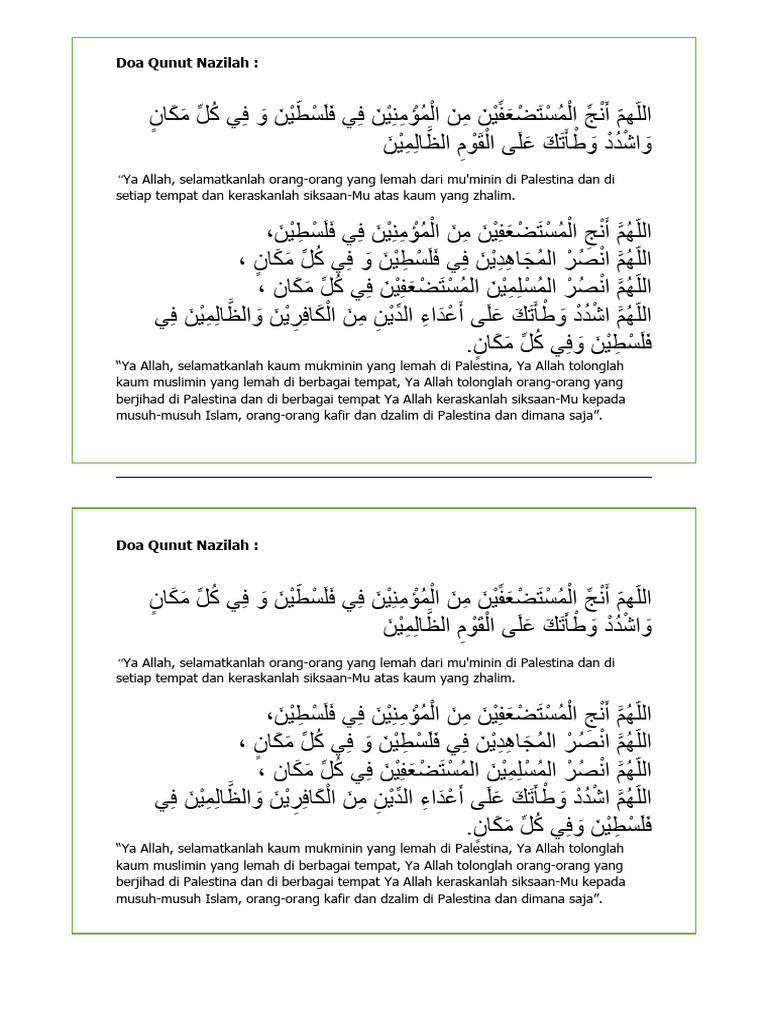 Doa Qunut Nazilah :
اللَّهمَ أَنْجِّ الْمُسْتَضْعَفِّيْنَ مِنَ الْمُؤْمِنِيْنَ فِي فَلَسْطِّيْنَ وَ فِي كُلِّ مَكَانٍ
وَاشْدُدْ وَطْأَتَكَ عَلَى الْقَوْمِ الظَّالِمِيْنَ
“Ya Allah, selamatkanlah orang-orang yang lemah dari mu'minin di Palestina dan di
setiap tempat dan keraskanlah siksaan-Mu atas kaum yang zhalim.
اللَّهُمَّ أَنْجِ الْمُسْتَضْعَفِيْنَ مِنَ الْمُؤْمِنِيْنَ فِي فَلَسْطِيْنَ،
اللَّهُمَّ انْصُرْ المُجَاهِدِيْنَ فِي فَلَسْطِيْنَ وَ فِي كُلِّ مَكَانٍ ،
اللَّهُمَّ انْصُرْ المُسْلِمِيْنَ المُسْتَضْعَفِيْنَ فِي كُلِّ مَكَان ،
اللَّهُمَّ اشْدُدْ وَطْأَتَكَ عَلَى أَعْدَاءِ الدَّيْنِ مِنَ الْكَافِرِيْنَ وَالظَّالِمِيْنَ فِي
فَلَسْطِيْنَ وَفِي كُلِّ مَكَانٍ.
“Ya Allah, selamatkanlah kaum mukminin yang lemah di Palestina, Ya Allah tolonglah
kaum muslimin yang lemah di berbagai tempat, Ya Allah tolonglah orang-orang yang
berjihad di Palestina dan di berbagai tempat Ya Allah keraskanlah siksaan-Mu kepada
musuh-musuh Islam, orang-orang kafir dan dzalim di Palestina dan dimana saja”.
Doa Qunut Nazilah :
اللَّهمَ أَنْجِّ الْمُسْتَضْعَفِّيْنَ مِنَ الْمُؤْمِنِيْنَ فِي فَلَسْطِّيْنَ وَ فِي كُلِّ مَكَانٍ
وَاشْدُدْ وَطْأَتَكَ عَلَى الْقَوْمِ الظَّالِمِيْنَ
“Ya Allah, selamatkanlah orang-orang yang lemah dari mu'minin di Palestina dan di
setiap tempat dan keraskanlah siksaan-Mu atas kaum yang zhalim.
اللَّهُمَّ أَنْجِ الْمُسْتَضْعَفِيْنَ مِنَ الْمُؤْمِنِيْنَ فِي فَلَسْطِيْنَ،
اللَّهُمَّ انْصُرْ المُجَاهِدِيْنَ فِي فَلَسْطِيْنَ وَ فِي كُلِّ مَكَانٍ ،
اللَّهُمَّ انْصُرْ المُسْلِمِيْنَ المُسْتَضْعَفِيْنَ فِي كُلِّ مَكَان ،
اللَّهُمَّ اشْدُدْ وَطْأَتَكَ عَلَى أَعْدَاءِ الدَّيْنِ مِنَ الْكَافِرِيْنَ وَالظَّالِمِيْنَ فِي
فَلَسْطِيْنَ وَفِي كُلِّ مَكَانٍ.
“Ya Allah, selamatkanlah kaum mukminin yang lemah di Palestina, Ya Allah tolonglah
kaum muslimin yang lemah di berbagai tempat, Ya Allah tolonglah orang-orang yang
berjihad di Palestina dan di berbagai tempat Ya Allah keraskanlah siksaan-Mu kepada
musuh-musuh Islam, orang-orang kafir dan dzalim di Palestina dan dimana saja”.